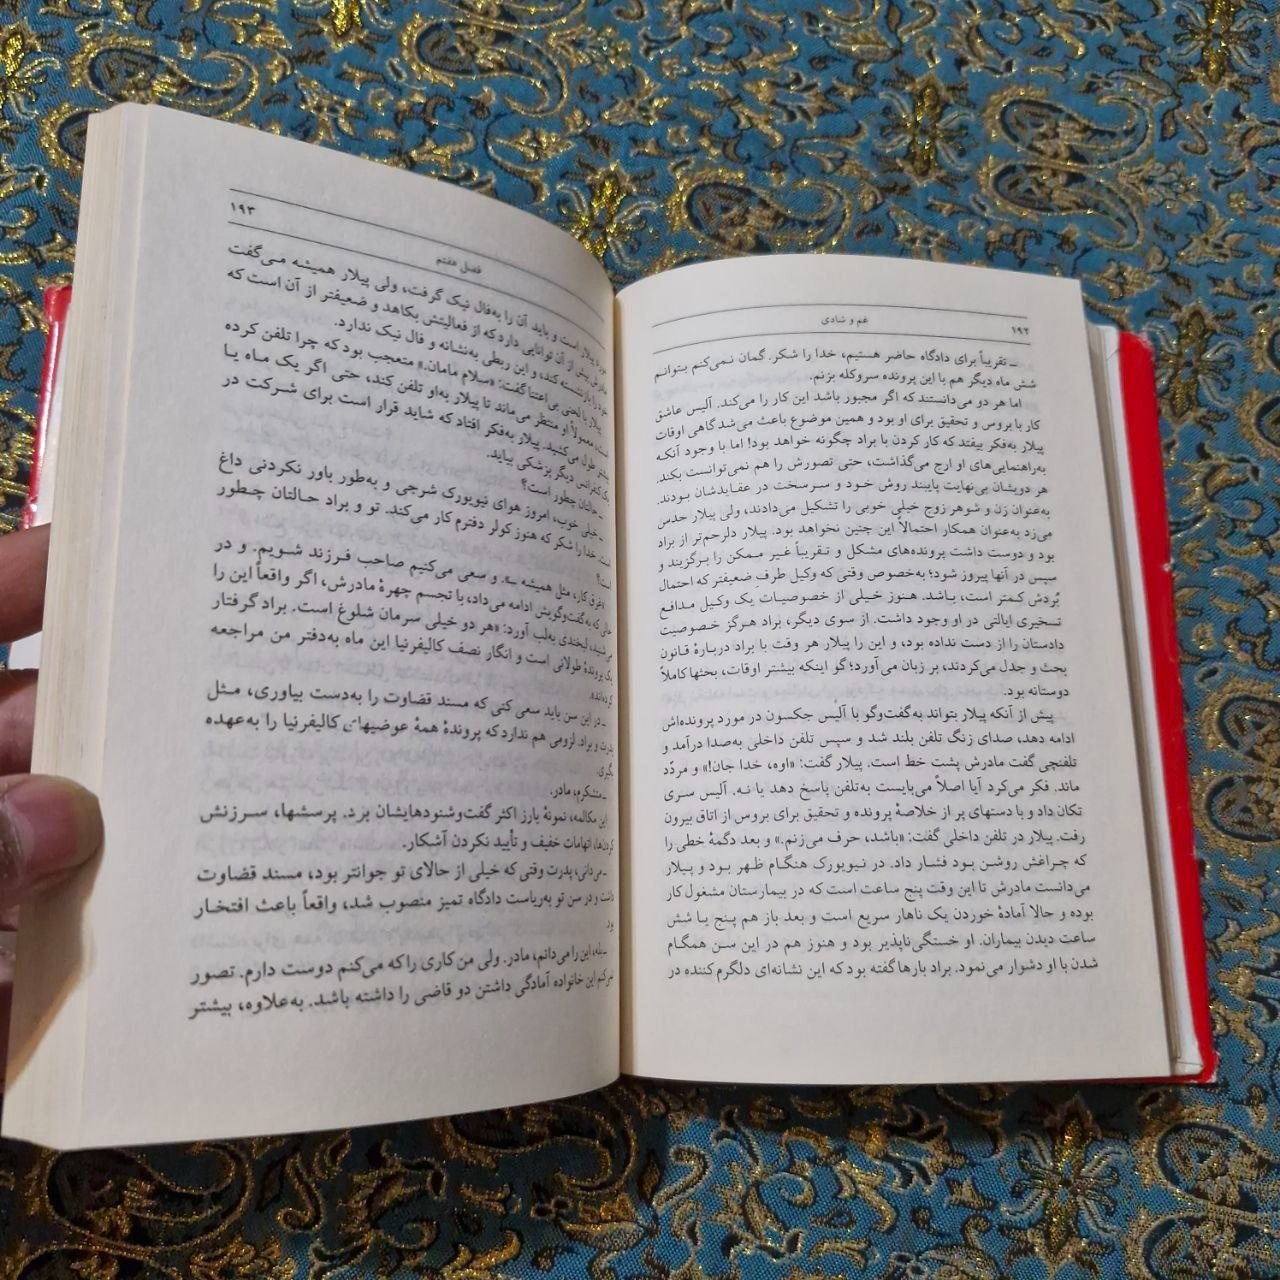 ۱۹۲
غم و شادی
ــ تقریباً برای دادگاه حاضر هستیم، خدا را شکر. گمان نمی‌کنم بتوانم
شش ماه دیگر هم با این پرونده سروکله بزنم.
اما هر دو می‌دانستند که اگر مجبور باشد این کار را می‌کند. آلیس عاشق
کار با بروس و تحقیق برای او بود و همین موضوع باعث می‌شد گاهی اوقات
پیلار به‌فکر بیفتد که کار کردن با براد چگونه خواهد بود! اما با وجود آنکه
به‌راهنمایی‌های او ارج می‌گذاشت، حتی تصورش را هم نمی‌توانست بکند.
هر دویشان بی‌نهایت پایبند روش خود و سرسخت در عقایدشان بودند.
به‌عنوان زن و شوهر زوج خیلی خوبی را تشکیل می‌دادند، ولی پیلار حدس
می‌زد به‌عنوان همکار احتمالاً این چنین نخواهد بود. پیلار دلرحم‌تر از براد
بود و دوست داشت پرونده‌های مشکل و تقریباً غیر ممکن را برگزیند و
سپس در آنها پیروز شود؛ به‌خصوص وقتی که وکیل طرف ضعیفتر که احتمال
بُردش کمتر است، باشد. هنوز خیلی از خصوصیات یک وکیل مدافع
تسخیری ایالتی در او وجود داشت. از سوی دیگر، براد هرگز خصوصیت
دادستان را از دست نداده بود، و این را پیلار هر وقت با براد دربارهٔ قانون
بحث و جدل می‌کردند، بر زبان می‌آورد؛ گو اینکه بیشتر اوقات، بحثها کاملاً
دوستانه بود.
پیش از آنکه پیلار بتواند به‌گفت‌وگو با آلیس جکسون در مورد پرونده‌اش
ادامه دهد، صدای زنگ تلفن بلند شد و سپس تلفن داخلی به‌صدا درآمد و
تلفنچی گفت مادرش پشت خط است. پیلار گفت: «اوه، خدا جان!» و مردّد
ماند. فکر می‌کرد آیا اصلاً می‌بایست به‌تلفن پاسخ دهد یا نه. آلیس سری
تکان داد و با دستهای پر از خلاصهٔ پرونده و تحقیق برای بروس از اتاق بیرون
رفت. پیلار در تلفن داخلی گفت: «باشد، حرف می‌زنم.» و بعد دگمهٔ خطی را
که چراغش روشن بود فشار داد. در نیویورک هنگام ظهر بود و پیلار
می‌دانست مادرش تا این وقت پنج ساعت است که در بیمارستان مشغول کار
بوده و حالا آمادهٔ خوردن یک ناهار سریع است و بعد باز هم پنج یا شش
ساعت دیدن بیماران. او خستگی‌ناپذیر بود و هنوز هم در این سن همگام
شدن با او دشوار می‌نمود. براد بارها گفته بود که این نشانه‌ای دلگرم‌کننده در
۱۹۳
فصل هفتم
پیلار است و باید آن را به‌فال نیک گرفت، ولی پیلار همیشه می‌گفت
مادرش بیش از آن توانایی دارد که از فعالیتش بکاهد و ضعیفتر از آن است که
خود را بازنشسته کند، و این ربطی به‌نشانه و فال نیک ندارد.
پیلار با لحنی بی‌اعتنا گفت: «سلام مامان.» متعجب بود که چرا تلفن کرده
است، معمولاً او منتظر می‌ماند تا پیلار به‌او تلفن کند، حتی اگر یک ماه یا
بیشتر طول می‌کشید. پیلار به‌فکر افتاد که شاید قرار است برای شرکت در
یک کنفرانس دیگر پزشکی بیاید.
ــ حالتان چطور است؟
ــ خیلی خوب، امروز هوای نیویورک شرجی و به‌طور باور نکردنی داغ
است. خدا را شکر که هنوز کولر دفترم کار می‌کند. تو و براد حالتان چطور
است؟
«غرق کار، مثل همیشه ــ». و سعی می‌کنیم صاحب فرزند شویم. و در
حالی که به‌گفت‌وگویش ادامه می‌داد، با تجسم چهرهٔ مادرش، اگر واقعاً این را
می‌شنید، لبخندی به‌لب آورد: «هر دو خیلی سرمان شلوغ است. براد گرفتار
یک پروندهٔ طولانی است و انگار نصف کالیفرنیا این ماه به‌دفتر من مراجعه
کرده‌اند».
ــ در این سن باید سعی کنی که مسند قضاوت را به‌دست بیاوری، مثل
پدرت و براد. لزومی هم ندارد که پروندهٔ همهٔ عوضیهای کالیفرنیا را به‌عهده
بگیری.
ــ متشکرم، مادر.
این مکالمه، نمونهٔ بارز اکثر گفت‌وشنودهایشان بود. پرسشها، سرزنش
کردن‌ها، اتهامات خفیف و تأیید نکردن آشکار.
ــ می‌دانی، پدرت وقتی که خیلی از حالای تو جوانتر بود، مسند قضاوت
داشت و در سن تو به‌ریاست دادگاه تمیز منصوب شد، واقعاً باعث افتخار
بود.
ــ بله، این را می‌دانم، مادر. ولی من کاری را که می‌کنم دوست دارم. تصور
نمی‌کنم این خانواده آمادگی داشتن دو قاضی را داشته باشد. به‌علاوه، بیشتر